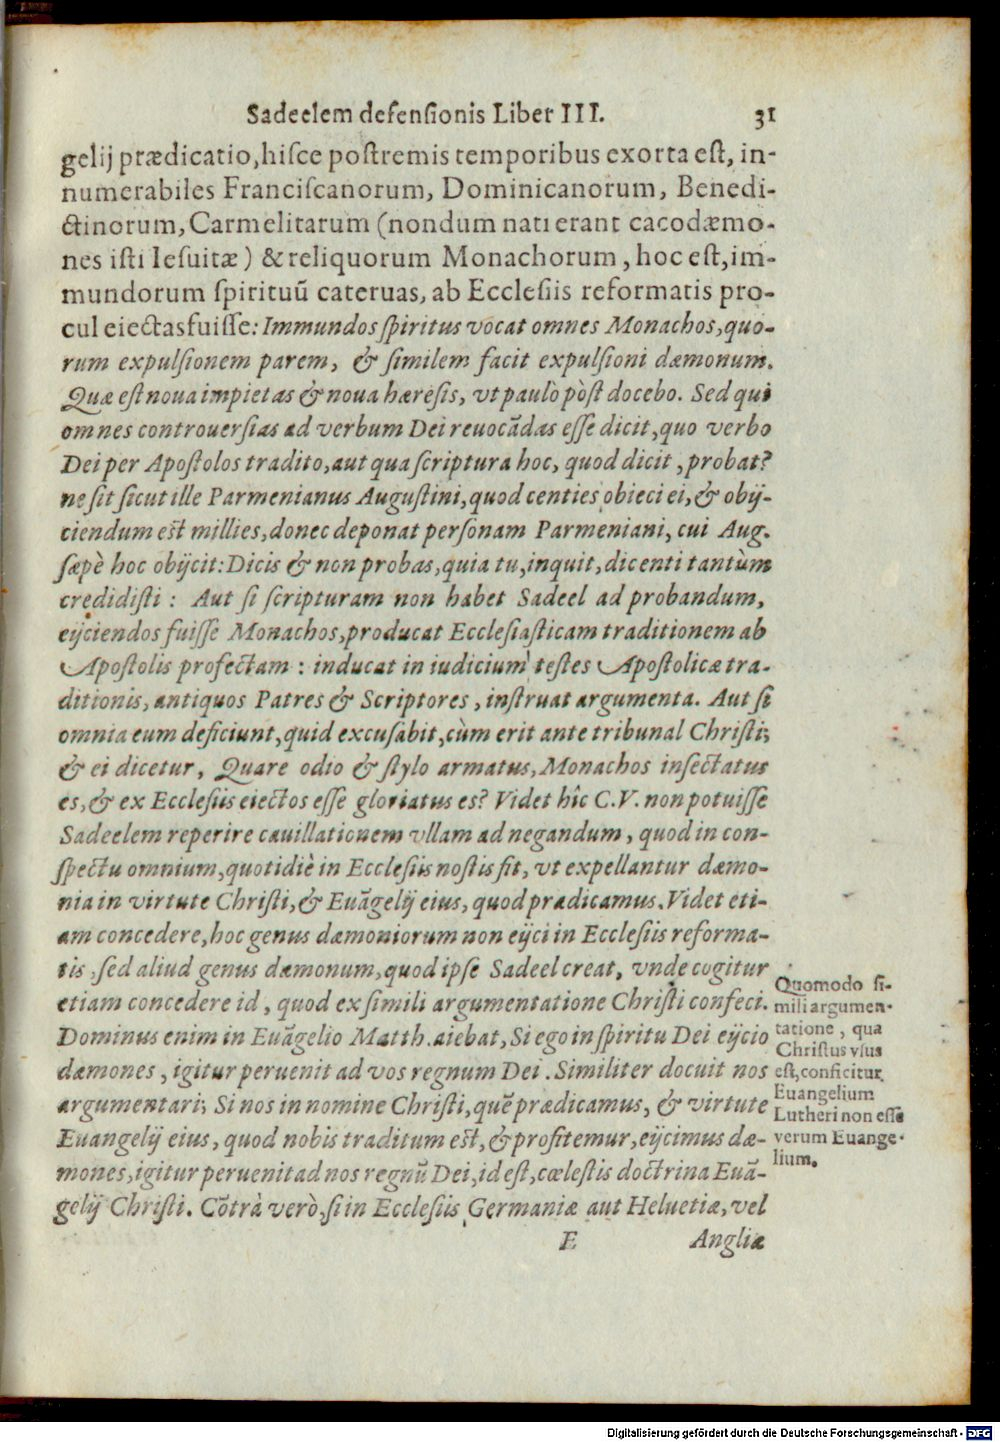 Sadeelem defensionis Liber III. 31
gelij prædicatio, hisce postremis temporibus exorta est, in-
numerabiles Franciscanorum, Dominicanorum, Benedi-
ctinorum, Carmelitarum (nondum nati erant cacodæmo-
nes isti Iesuitæ) & reliquorum Monachorum, hoc est, im-
mundorum spirituū cateruas, ab Ecclesiis reformatis pro-
cul eiectas fuisse: Immundos spiritus vocat omnes Monachos, quo-
rum expulsionem parem, & similem facit expulsioni dæmonum.
Quæ est noua impietas & noua hæresis, vt paulò pòst docebo. Sed qui
omnes controuersias ad verbum Dei reuocādas esse dicit, quo verbo
Dei per Apostolos tradito, aut qua scriptura hoc, quod dicit, probat?
ne sit sicut ille Parmenianus Augustini, quod centies obieci ei, & obij-
ciendum est millies, donec deponat personam Parmeniani, cui Aug.
sæpè hoc obijcit: Dicis & non probas, quia tu, inquit, dicenti tantùm
credidisti: Aut si scripturam non habet Sadeel ad probandum,
eijciendos fuisse Monachos, producat Ecclesiasticam traditionem ab
Apostolis profectam: inducat in iudicium testes Apostolicæ tra-
ditionis, antiquos Patres & Scriptores, instruat argumenta. Aut si
omnia eum deficiunt, quid excusabit, cùm erit ante tribunal Christi;
& ei dicetur, Quare odio & stylo armatus, Monachos insectatus
es, & ex Ecclesiis eiectos esse gloriatus es? Videt hîc C.V. non potuisse
Sadeelem reperire cauillationem vllam ad negandum, quod in con-
spectu omnium, quotidiè in Ecclesiis nostis fit, vt expellantur dæmo-
nia in virtute Christi, & Euāgelij eius, quod prædicamus. Videt eti-
am concedere, hoc genus dæmoniorum non eijci in Ecclesiis reforma-
tis, sed aliud genus dæmonum, quod ipse Sadeel creat, vnde cogitur
etiam concedere id, quod ex simili argumentatione Christi confeci.
Dominus enim in Euāgelio Matth. aiebat, Si ego in spiritu Dei eijcio
dæmones, igitur peruenit ad vos regnum Dei. Similiter docuit nos
argumentari; Si nos in nomine Christi, quē prædicamus, & virtute
Euangelij eius, quod nobis traditum est, & profitemur, eijcimus dæ-
mones, igitur peruenit ad nos regnū Dei, id est, cœlestis doctrina Euā-
gelij Christi. Cōtrà verò, si in Ecclesiis Germaniæ aut Heluetiæ, vel
E Angliæ
Quomodo si-
mili argumen-
tatione, qua
Christus vsus
est, conficitur,
Euangelium
Lutheri non esse
verum Euange-
lium.
Digitalisierung gefördert durch die Deutsche Forschungsgemeinschaft - DFG